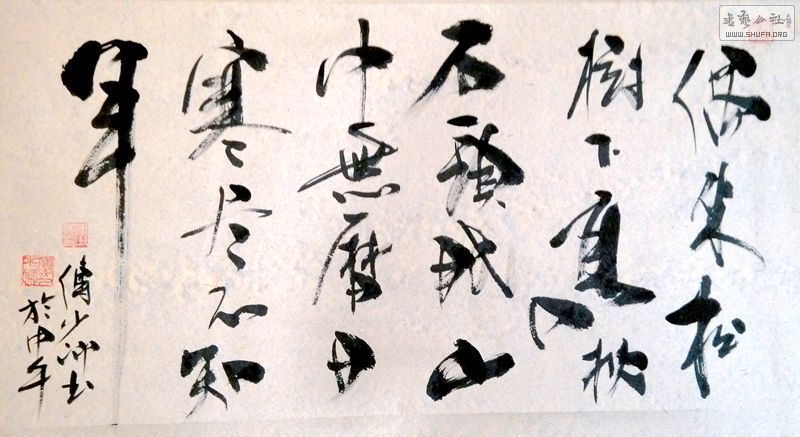 偶来松
樹下高枕
石頭眠山
中無曆日
寒尽不知
年
於甲午
书艺公社
WWW.SHUFA.ORG